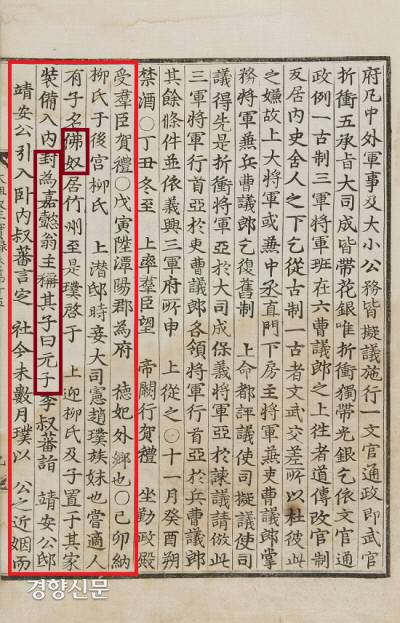 府凡中外軍事及大小公務皆擬議施行一文官通政即武官
折衝五承旨大司成皆帶花銀唯折衝獨帶光銀乞依文官通
政例一古制三軍將軍班在六曹議郎之上往者道傳改官制
反居内史舍人之下乞從古制一古者文武交差所以杜彼此
之嫌故上大將軍或兼中丞直門下房主將軍兼吏曹議郎掌
務將軍兼兵曹議郎乞復舊制 上命都評議使司擬議使司
議得先是折衝將軍亞於大司成保義將軍亞於諫議請倣此
三軍將軍行首亞於吏曹議郎各領將軍行首亞於兵曹議郎
其餘條件並依義興三軍府所申 上從之○十一月癸酉朔
禁酒○丁丑冬至 上率羣臣望 帝闕行賀禮 坐勤政殿
受羣臣賀禮○戊寅陞潭陽郡為府 德妃外鄕也○己卯納
柳氏于後宮柳氏 上潛邸時妾大司憲趙璞族妹也嘗適人
有子名佛奴居竹州至是璞啓于 上迎柳氏及子置于其家
裝備入内封為嘉懿翁主稱其子曰元子李叔蕃詣 靖安公邸
靖安公引入臥内叔蕃言定 社今未數月璞以 公之近姻而
경향신문